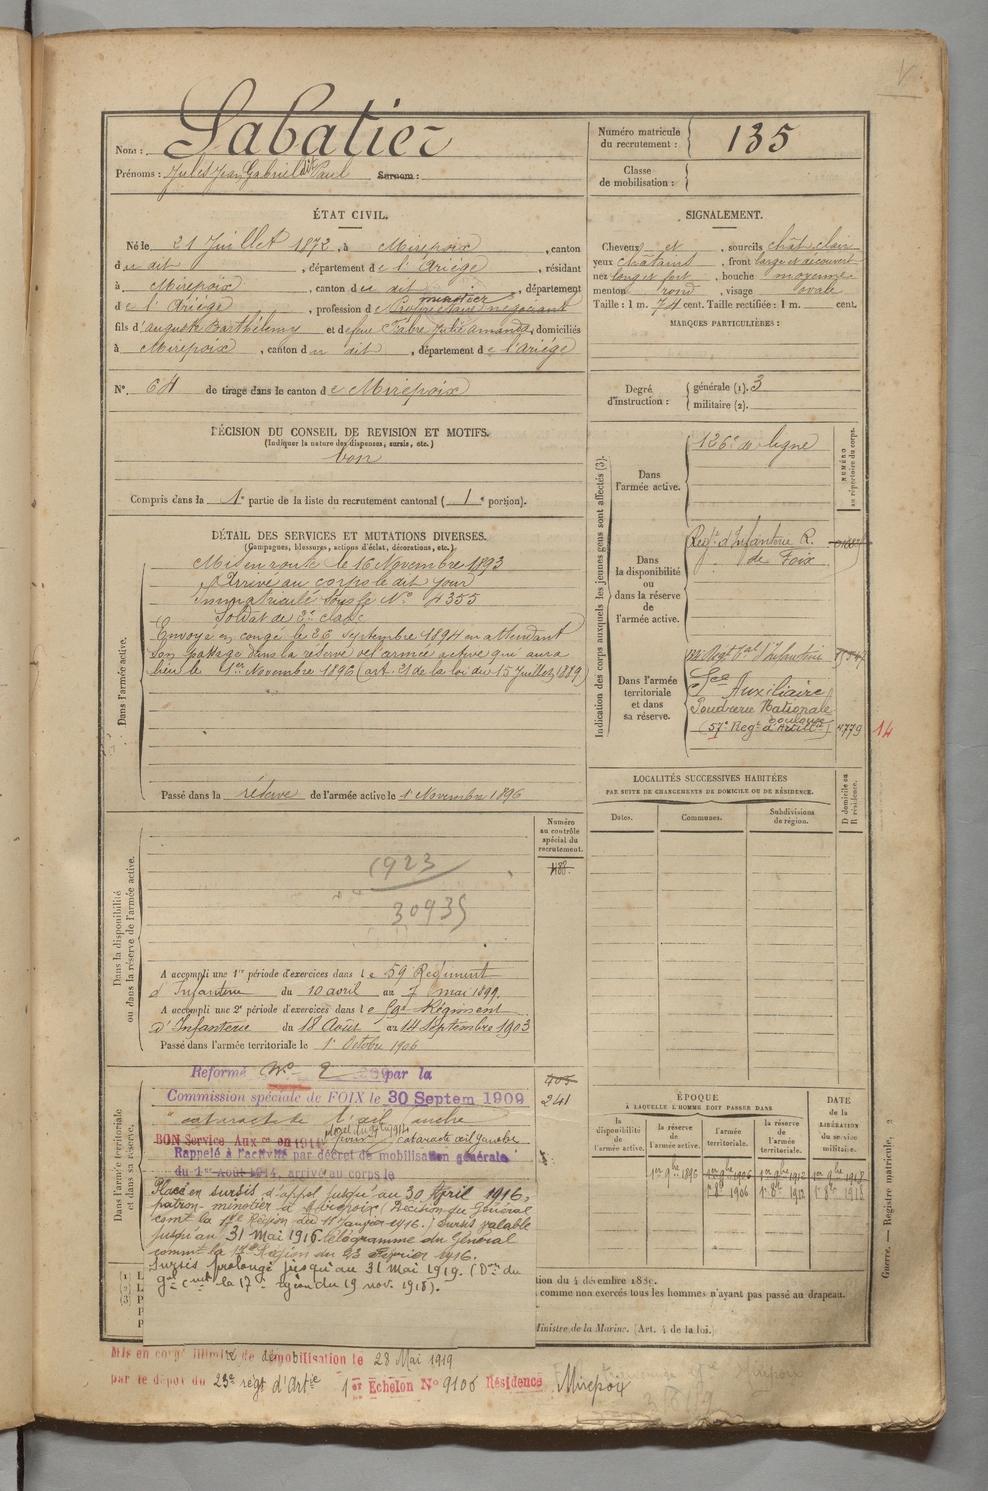 Nom : Sabatier
Prénoms : Jules Jean Gabriel dit Paul Surnom :
Numéro matricule du recrutement : 135
Classe de mobilisation :
ÉTAT CIVIL.
Né le 21 Juillet 1872, à Mirepoix, canton
du dit, département de l'Ariège, résidant
à Mirepoix, canton du dit, département
minotier
de l'Ariège, profession de Propriétaire négociant
fils d'Auguste Barthélemy et de feue Fabre Julie Amanda, domiciliés
à Mirepoix, canton du dit, département de l'Ariège
N° 64 de tirage dans le canton de Mirepoix
DÉCISION DU CONSEIL DE REVISION ET MOTIFS.
(Indiquer la nature des dispenses, sursis, etc.)
bon
Compris dans la 1e partie de la liste du recrutement cantonal (1e portion).
SIGNALEMENT.
Cheveux et, sourcils chât. clair
yeux châtains, front large et découvert
nez long et fort, bouche moyenne
menton rond, visage ovale
Taille : 1 m. 74 cent. Taille rectifiée : 1 m. cent.
MARQUES PARTICULIÈRES :
Degré d'instruction :
générale (1). 3
militaire (2).
DÉTAIL DES SERVICES ET MUTATIONS DIVERSES.
(Campagnes, blessures, actions d'éclat, décorations, etc.)
Dans l'armée active.
Mis en route le 16 Novembre 1893
Arrivé au corps le dit jour
Immatriculé sous le N° 4355
Soldat de 2e classe
Envoyé en congé le 26 Septembre 1894 en attendant
son passage dans la réserve de l'armée active qui aura
lieu le 1er Novembre 1896 (art. 21 de la loi du 15 Juillet 1889)
Passé dans la réserve de l'armée active le 1 Novembre 1896
Indication des corps auxquels les jeunes gens sont affectés (3).
NUMÉRO au répertoire du corps.
Dans l'armée active.
126e de ligne
Dans la disponibilité ou dans la réserve de l'armée active.
Regt d'Infanterie R.
de Foix
Dans l'armée territoriale et dans sa réserve.
Regt Tal d'Infanterie
Sce Auxiliaire
Poudrerie Nationale
Toulouse
(57e Regt d'Artillie) 4779 14
LOCALITÉS SUCCESSIVES HABITÉES
PAR SUITE DE CHANGEMENTS DE DOMICILE OU DE RÉSIDENCE.
D domicile ou R résidence.
Dates. Communes. Subdivisions de région.
Dans la disponibilité ou dans la réserve de l'armée active.
Numéro au contrôle spécial du recrutement.
488.
1923
30935
A accompli une 1re période d'exercices dans le 59 Régiment
d'Infanterie du 10 avril au 7 mai 1899.
A accompli une 2e période d'exercices dans le 59e Régiment
d'Infanterie du 18 Août au 14 Septembre 1903
Passé dans l'armée territoriale le 1r Octobre 1906
Dans l'armée territoriale et dans sa réserve.
405
241
Réformé N° 2 par la
Commission spéciale de FOIX le 30 Septem 1909
cataracte de l'œil gauche
BON Service Aux re en 1914 cataracte œil gauche
Rappelé à l'activité par décret de mobilisation générale
du 1er Août 1914, arrivé au corps le
Placé en sursis d'appel jusqu'au 30 Avril 1916,
patron minotier à Mirepoix (Décision du Général
comt la 17e Région du 11 janvier 1916.) Sursis valable
jusqu'au 31 Mai 1916. télégramme du Général
commt la 17e Région du 23 Février 1916.
Sursis prolongé jusqu'au 31 Mai 1919. (Don du
gal cmdt la 17e région du 19 nov. 1918).
ÉPOQUE
À LAQUELLE L'HOMME DOIT PASSER DANS
la disponibilité de l'armée active. la réserve de l'armée active. l'armée territoriale. la réserve de l'armée territoriale.
DATE de la LIBÉRATION du service militaire.
1er 9bre 1896 1er 9bre 1906 1er 9bre 1912 1er 9bre 1918
1r 8bre 1906 1r 8bre 1912 1r 8bre 1918
tion du 4 décembre 1889.
comme non exercés tous les hommes n'ayant pas passé au drapeau.
Ministre de la Marine. (Art. 4 de la loi.)
Guerre. — Registre matricule, 2
Mis en congé illimité de démobilisation le 28 Mai 1919
par le dépôt du 23e régt d'Artie 1er Echelon N° 9106 Résidence Mirepoix